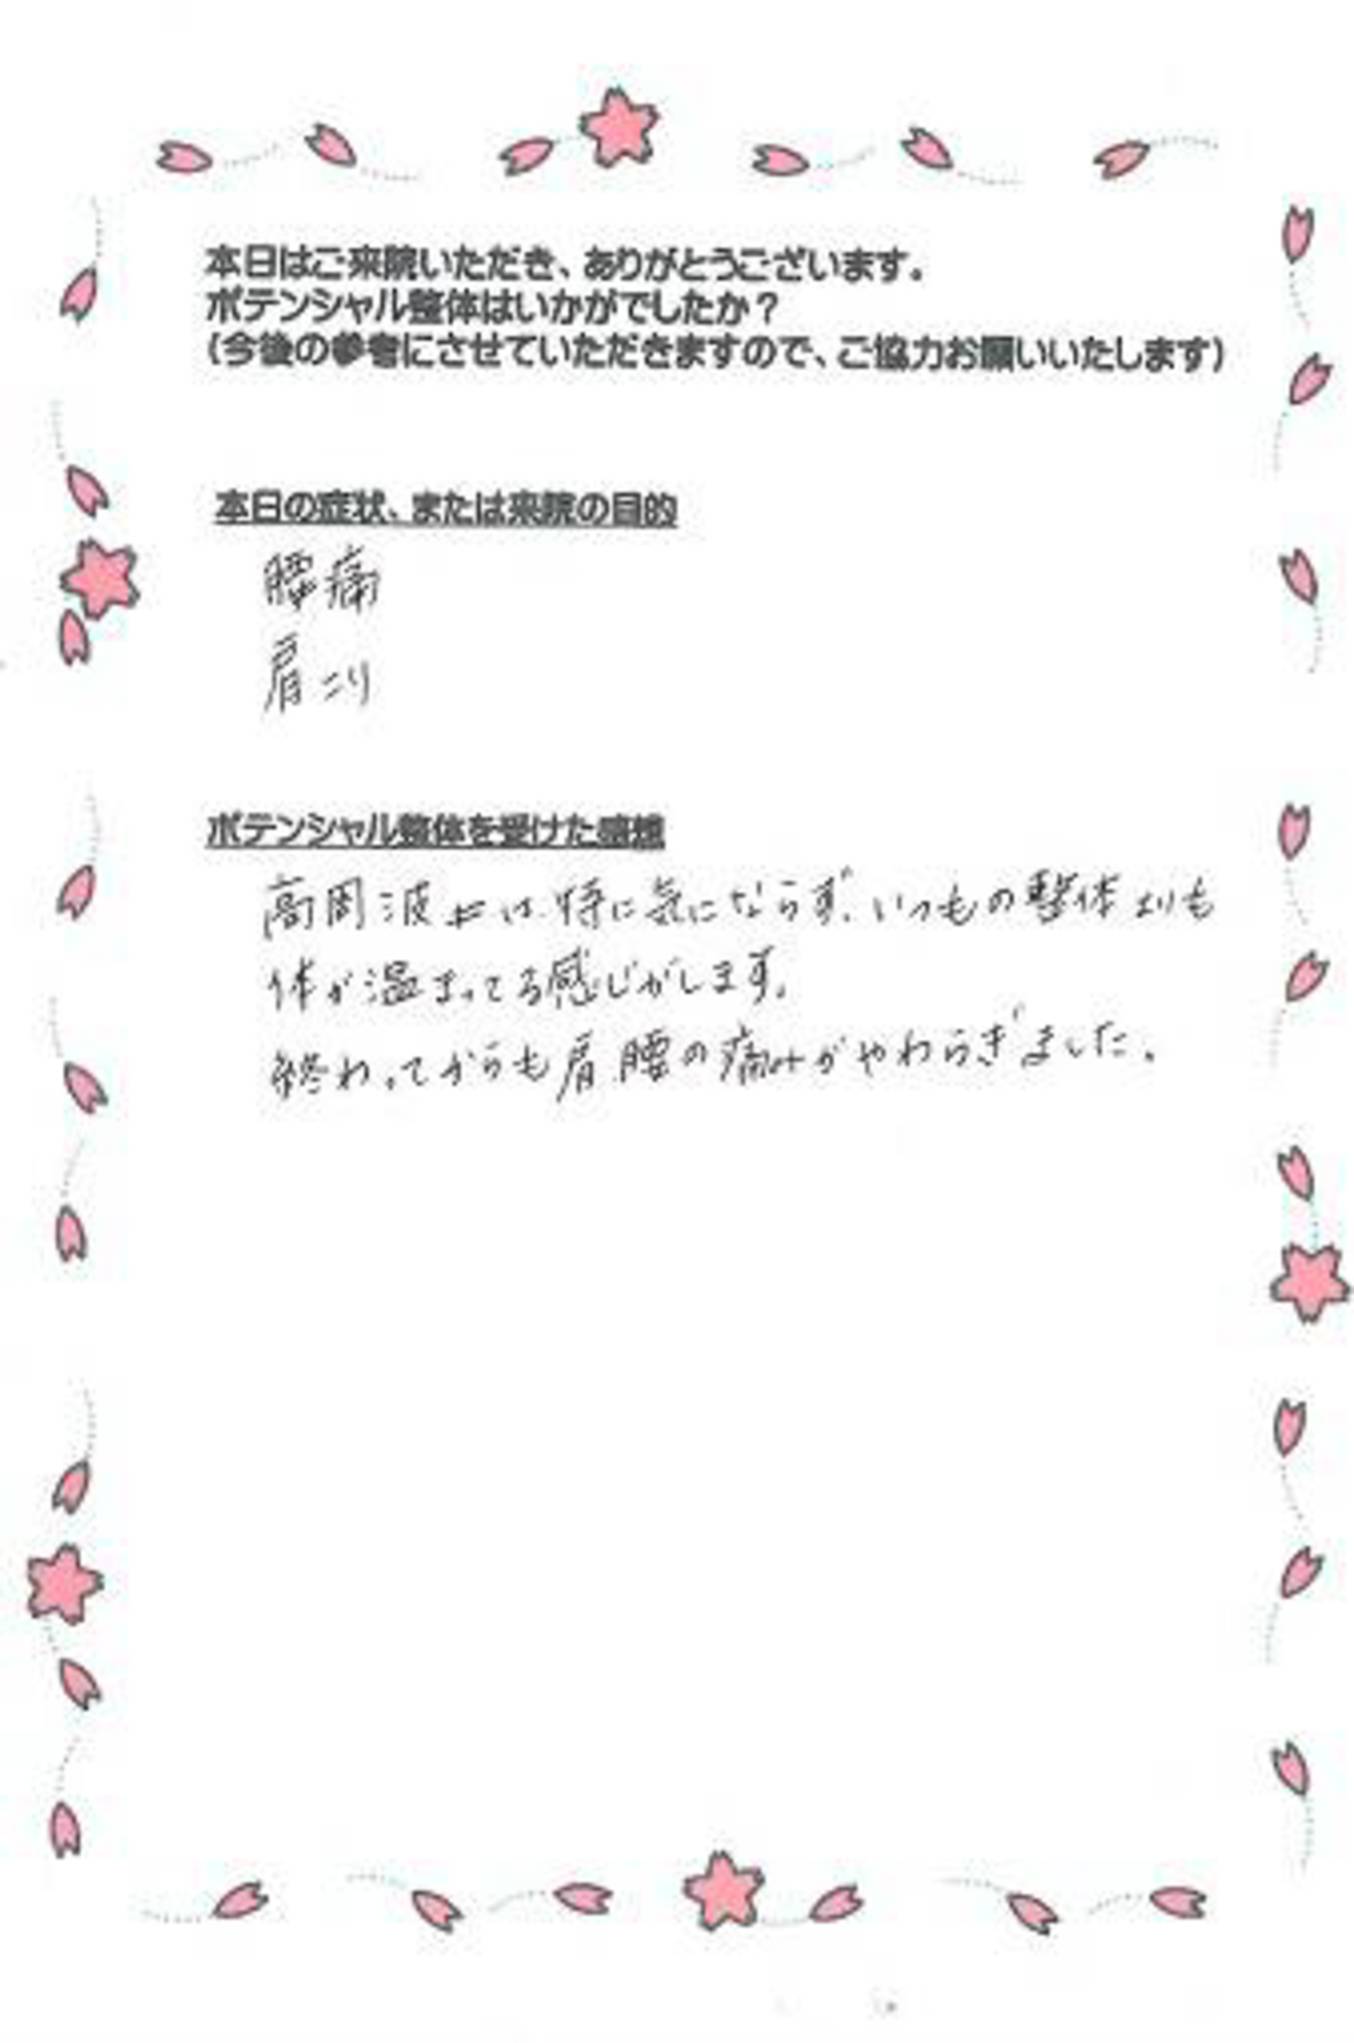 本日はご来院いただき、ありがとうございます。
ポテンシャル整体はいかがでしたか?
(今後の参考にさせていただきますので、ご協力お願いいたします)
本日の症状、または来院の目的
腰痛
肩こり
ポテンシャル整体を受けた感想
高周波は特に気にならず、いつもの整体よりも
体が温まってる感じがします。
終わってからも肩、腰の痛みがやわらぎました。